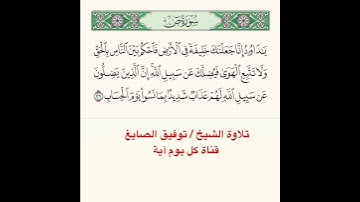 سورة ص
يَٰدَاوُۥدُ إِنَّا جَعَلْنَٰكَ خَلِيفَةً فِى ٱلْأَرْضِ فَٱحْكُم بَيْنَ ٱلنَّاسِ بِٱلْحَقِّ
وَلَا تَتَّبِعِ ٱلْهَوَىٰ فَيُضِلَّكَ عَن سَبِيلِ ٱللَّهِ ۚ إِنَّ ٱلَّذِينَ يَضِلُّونَ
عَن سَبِيلِ ٱللَّهِ لَهُمْ عَذَابٌ شَدِيدٌۢ بِمَا نَسُوا۟ يَوْمَ ٱلْحِسَابِ ٢٦
تلاوة الشيخ / توفيق الصايغ
قناة كل يوم آية